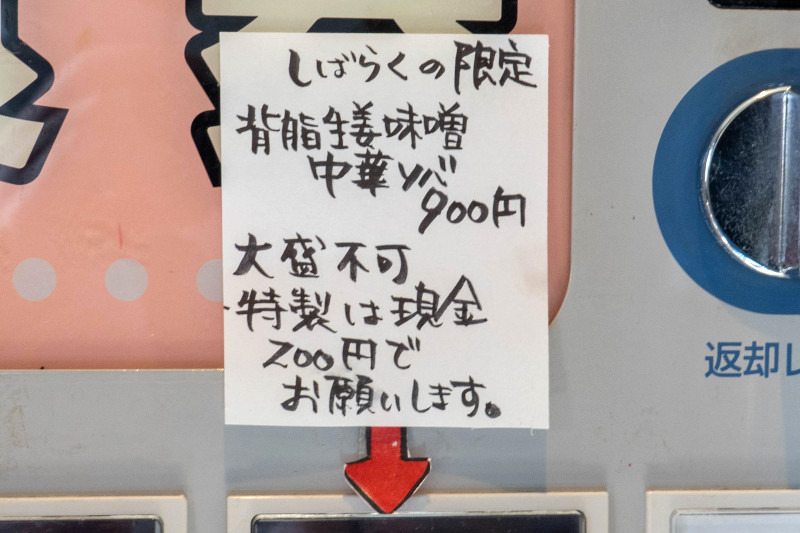 しばらくの限定
背脂生姜味噌
中華ソバ
900円
大盛不可
特製は現金
200円で
お願いします。
返却レ